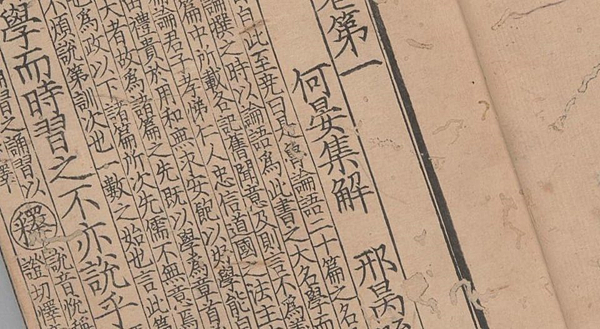 卷第一
何晏集解 邢昺
自此至堯曰是魯論語二十篇之名
論撰之時以論語為此書之大名學而
篇中所載各記舊聞意及則言不為義
論君子孝悌仁人忠信道國之法主友
由禮貴於用和無求安飽以好學能自
大者故為諸篇之先既以學為章首
也為政以下諸篇所次先儒不無意焉
不煩說第訓次也一數之始也言此篇
學而時習之不亦說乎
誦習以 釋 說音悅